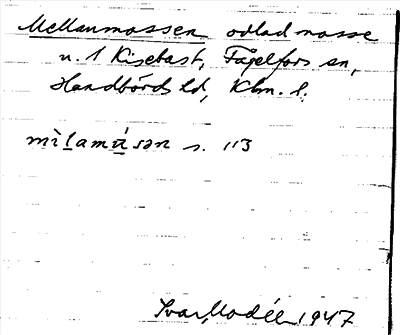 Mellanmossen odlad mosse
u. 1 Kisebast, Fågelfors sn,
Handbörds hd, Klm. l.
mìlamúsən s. 113
Ivar Modéer 1947